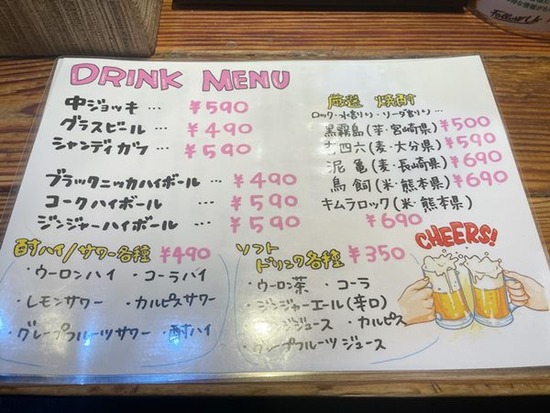 Follow Us
DRINK MENU
中ジョッキ … ¥590
グラスビール … ¥490
シャンディガフ … ¥590
ブラックニッカハイボール … ¥490
コークハイボール … ¥590
ジンジャーハイボール … ¥590
酎ハイ/サワー各種 ¥490
・ウーロンハイ ・コーラハイ
・レモンサワー ・カルピスサワー
・グレープフルーツサワー ・酎ハイ
厳選 焼酎
ロック・水割り・ソーダ割り…
黒霧島(芋・宮崎県) ¥500
吉四六(麦・大分県) ¥590
泥亀(麦・長崎県) ¥690
鳥飼(米・熊本県) ¥690
キムラロック(米・熊本県)
¥690
ソフト
ドリンク各種 ¥350
・ウーロン茶 ・コーラ
・ジンジャーエール(辛口)
ジュース ・カルピス
・グレープフルーツジュース
CHEERS!